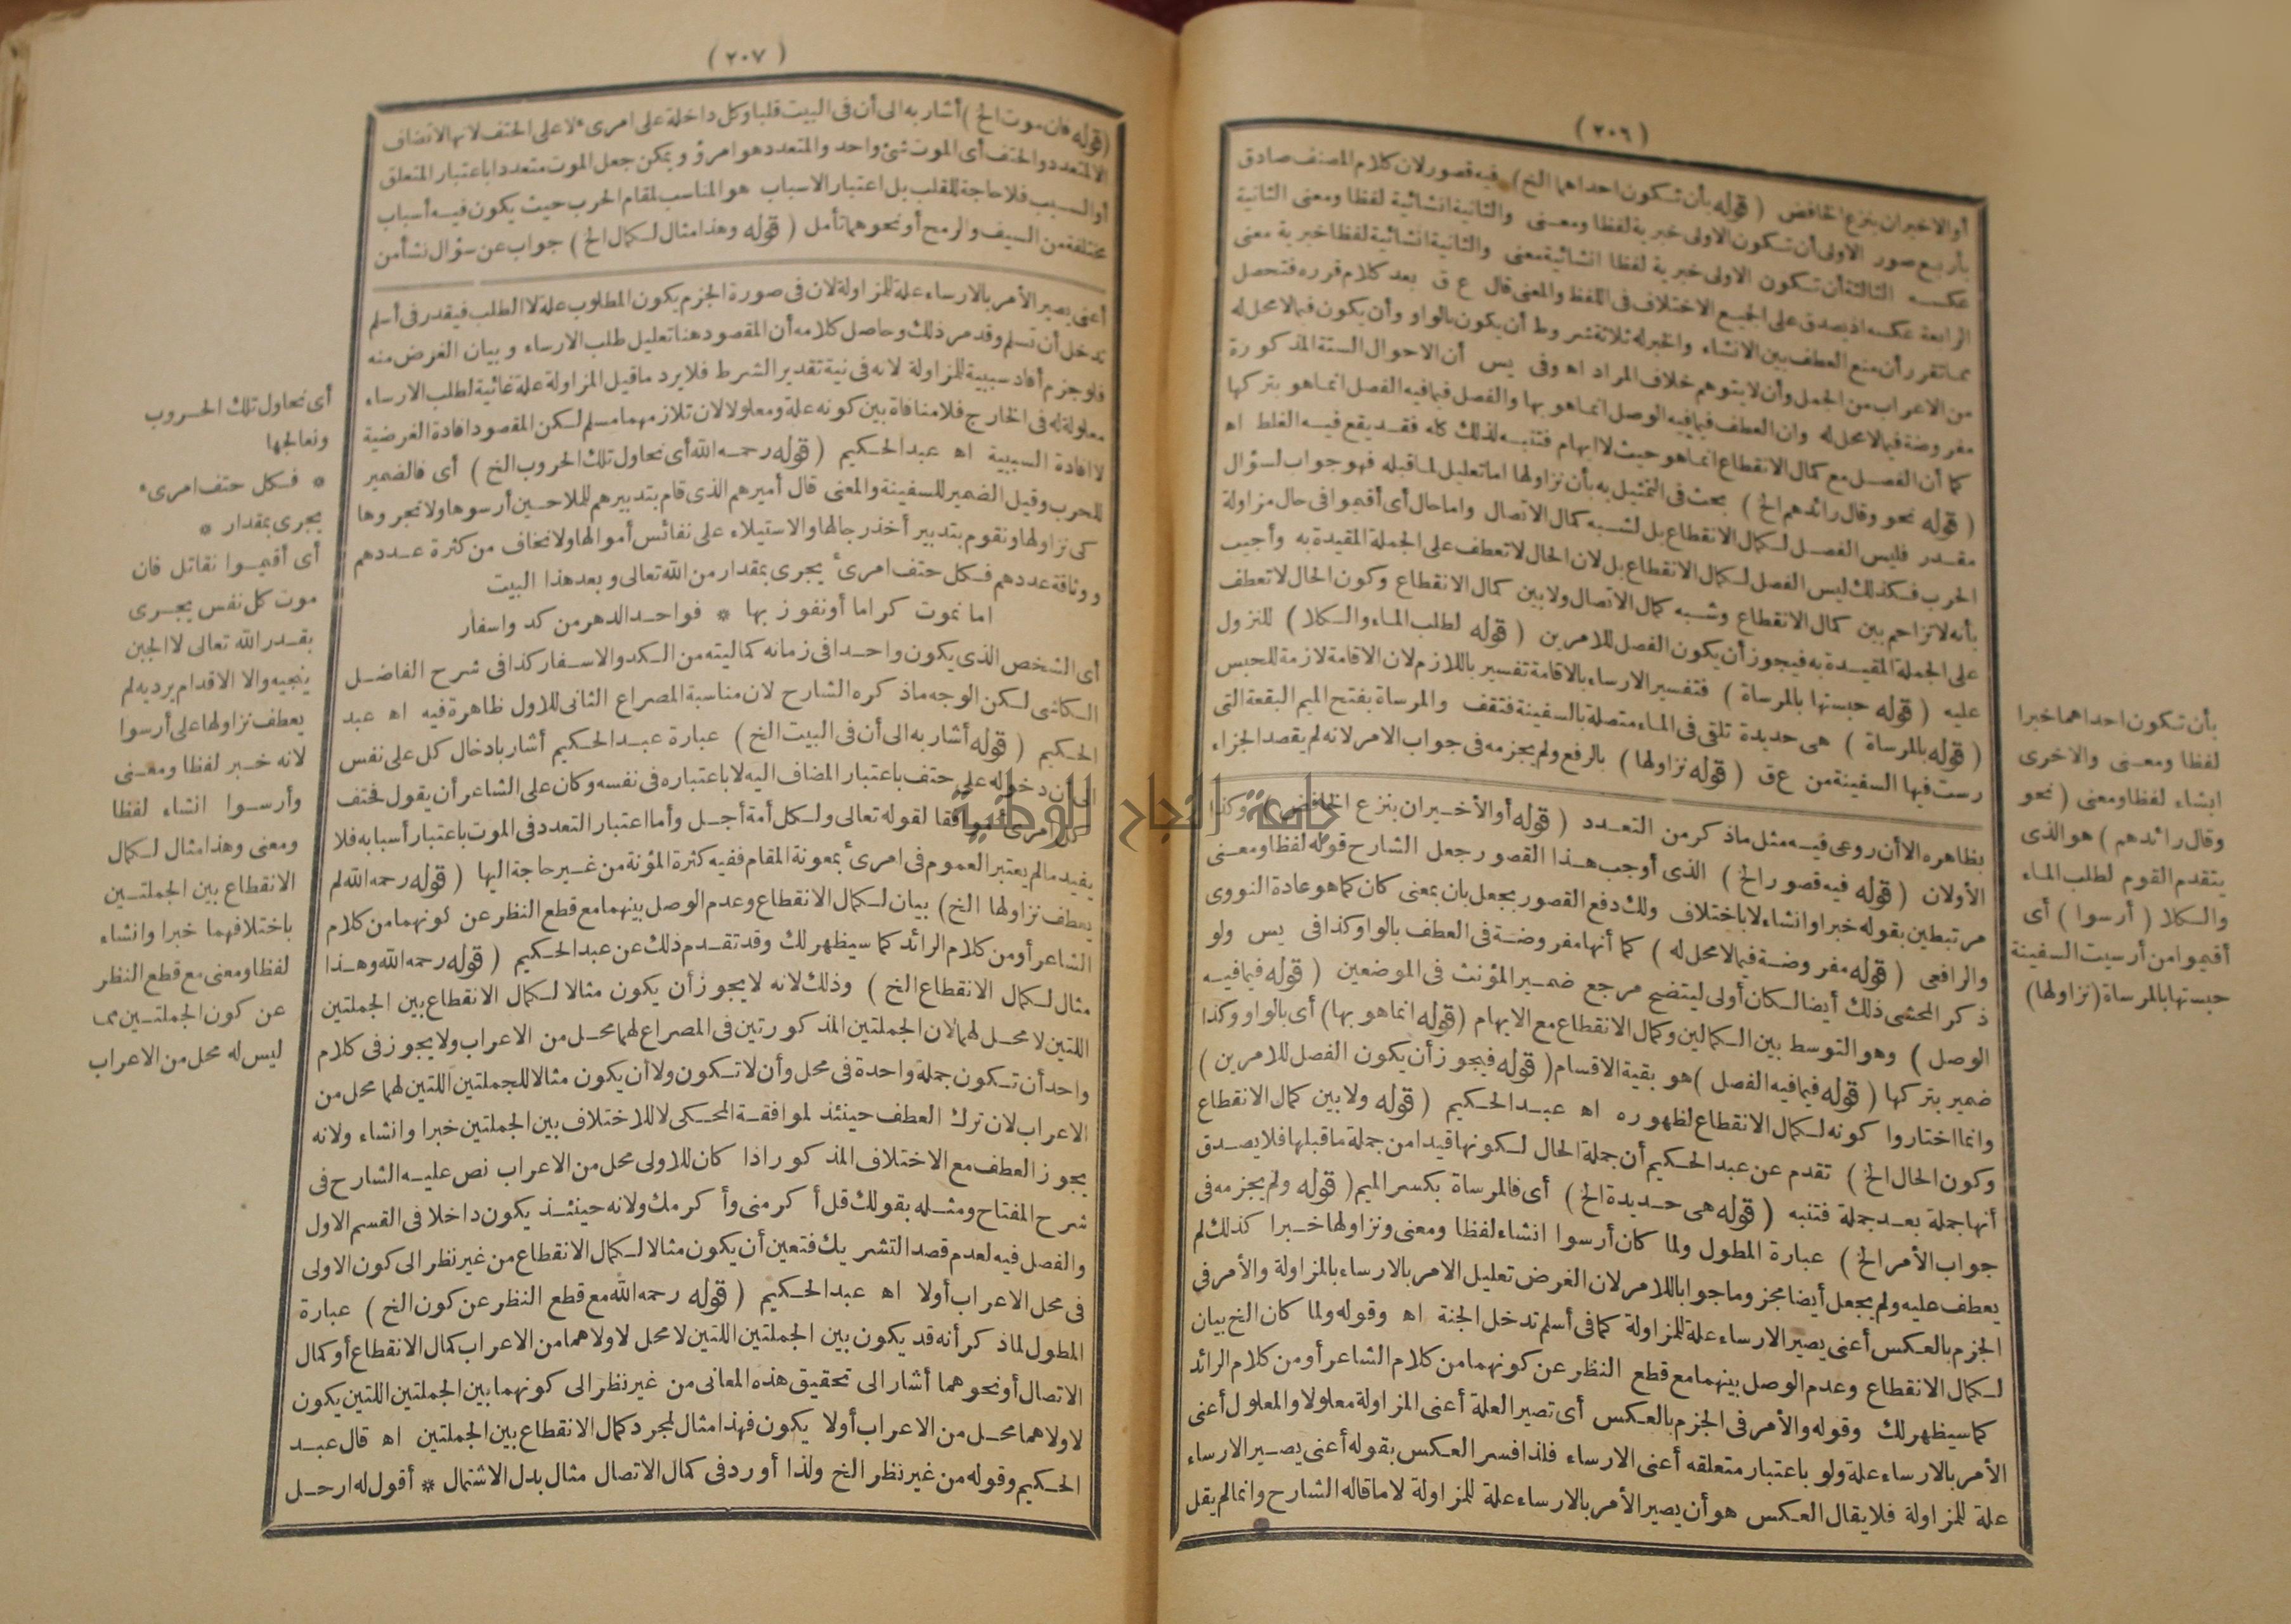 (٢٠٦)
أو الاخيران بنزع الخافض ( قوله بأن تكون احداهما الخ) فيه قصور لان كلام المصنف صادق
بأربع صور الاولى أن تكون الاولى خبرية لفظا ومعنى والثانية انشائية لفظا ومعنى الثانية
عكسه الثالثة أن تكون الاولى خبرية لفظا انشائية معنى والثانية انشائية لفظا خبرية معنى
الرابعة عكسه اذ يصدق على الجميع الاختلاف فى اللفظ والمعنى قال ع ق بعد كلام قرره فتحصل
مما تقرر أن منع العطف بين الانشاء والخبر له ثلاثة شروط أن يكون بالواو وأن يكون فيما لا محل له
من الاعراب من الجمل وأن لا يتوهم خلاف المراد اه وفى يس أن الاحوال الستة المذكورة
مفروضة فيما لا محل له وان العطف فيما فيه الوصل انما هو بها والفصل فيما فيه الفصل انما هو بتركها
كما أن الفصل مع كمال الانقطاع انما هو حيث لا ايهام فتنبه لذلك كله فقد يقع فيه الغلط اه
( قوله نحو وقال رائدهم الخ ) بحث فى التمثيل به بأن نزاولها اما تعليل لما قبله فهو جواب لسؤال
مقدر فليس الفصل لكمال الانقطاع بل لشبه كمال الاتصال واما حال أى أقيموا فى حال مزاولة
الحرب فكذلك ليس الفصل لكمال الانقطاع بل لان الحال لا تعطف على الجملة المقيدة به وأجيب
بأنه لا تزاحم بين كمال الانقطاع وشبه كمال الاتصال ولا بين كمال الانقطاع وكون الحال لا تعطف
على الجملة المقيدة به فيجوز أن يكون الفصل للامرين ( قوله لطلب الماء والكلا ) للنزول
عليه ( قوله حبستها بالمرساة ) فتفسير الارساء بالاقامة تفسير باللازم لان الاقامة لازمة للحبس
( قوله بالمرساة ) هى حديدة تلقى فى الماء متصلة بالسفينة فتقف والمرساة بفتح الميم البقعة التى
رست فيها السفينة من ع ق ( قوله نزاولها ) بالرفع ولم يجزمه فى جواب الامر لانه لم يقصد الجزاء
بظاهره الا أن روعى فيه مثل ماذكر من التعدد ( قوله أو الأخيران بنزع الخافض ) وكذا
الأولان ( قوله فيه قصور الخ ) الذى أوجب هذا القصور جعل الشارح قوله لفظا ومعنى
مرتبطين بقوله خبرا وانشاء لا باختلاف ولك دفع القصور بجعل بان بمعنى كان كما هو عادة النووى
والرافعى ( قوله مفروضة فيما لا محل له ) كما أنها مفروضة فى العطف بالواو كذا فى يس ولو
ذكر المحشى ذلك أيضا لكان أولى ليتضح مرجع ضمير المؤنث فى الموضعين ( قوله فيما فيه
الوصل ) وهو التوسط بين الكمالين وكمال الانقطاع مع الايهام (قوله انما هو بها) أى بالواو وكذا
ضمير بتركها ( قوله فيما فيه الفصل ) هو بقية الاقسام ( قوله فيجوز أن يكون الفصل للامرين )
وانما اختاروا كونه لكمال الانقطاع لظهوره اه عبد الحكيم ( قوله ولا بين كمال الانقطاع
وكون الحال الخ ) تقدم عن عبد الحكيم أن جملة الحال لكونها قيدا من جملة ما قبلها فلا يصدق
أنها جملة بعد جملة فتنبه ( قوله هى حديدة الخ ) أى فالمرساة بكسر الميم ( قوله ولم يجزمه فى
جواب الأمر الخ ) عبارة المطول ولما كان أرسوا انشاء لفظا ومعنى ونزاولها خبرا كذلك لم
يعطف عليه ولم يجعل أيضا مجزوما جوابا للامر لان الغرض تعليل الامر بالارساء بالمزاولة والأمر فى
الجزم بالعكس أعنى يصير الارساء علة للمزاولة كما فى أسلم تدخل الجنة اه وقوله ولما كان الخ بيان
لكمال الانقطاع وعدم الوصل بينهما مع قطع النظر عن كونهما من كلام الشاعر أو من كلام الرائد
كما سيظهر لك وقوله والأمر فى الجزم بالعكس أى تصير العلة أعنى المزاولة معلولا والمعلول أعنى
الأمر بالارساء علة ولو باعتبار متعلقه أعنى الارساء فلذا فسر العكس بقوله أعنى يصير الارساء
علة للمزاولة فلا يقال العكس هو أن يصير الأمر بالارساء علة للمزاولة لا ماقاله الشارح وانما لم يقل
بأن تكون احداهما خبرا
لفظا ومعنى والاخرى
انشاء لفظا ومعنى ( نحو
وقال رائدهم ) هو الذى
يتقدم القوم لطلب الماء
والكلا ( أرسوا ) أى
أقيموا من أرسيت السفينة
حبستها بالمرساة (نزاولها)
(٢٠٧)
(قوله فان موت الخ ) أشار به الى أن فى البيت قلبا وكل داخلة على امرىء لا على الحتف لانها لا تضاف
الا لمتعدد والحتف أى الموت شئ واحد والمتعدد هو امرؤ ويمكن جعل الموت متعددا باعتبار المتعلق
أو السبب فلا حاجة للقلب بل اعتبار الاسباب هو المناسب لمقام الحرب حيث يكون فيه أسباب
مختلفة من السيف والرمح أو نحوهما تأمل ( قوله وهذا مثال لكمال الخ ) جواب عن سؤال نشأ من
أعنى يصير الأمر بالارساء علة للمزاولة لان فى صورة الجزم يكون المطلوب علة لا الطلب فيقدر فى أسلم
تدخل أن تسلم وقد مر ذلك وحاصل كلامه أن المقصود هنا تعليل طلب الارساء وبيان الغرض منه
فلو جزم أفاد سببية للمزاولة لانه فى نية تقدير الشرط فلا يرد ما قيل المزاولة علة غائية لطلب الارساء
معلولة له فى الخارج فلا منافاة بين كونه علة ومعلولا لان تلازمهما مسلم لكن المقصود افادة الغرضية
لا افادة السببية اه عبد الحكيم ( قوله رحمه الله أى نحاول تلك الحروب الخ ) أى فالضمير
للحرب وقيل الضمير للسفينة والمعنى قال أميرهم الذى قام بتدبيرهم للملاحين أرسوها ولا تجروها
كى نزاولها ونقوم بتدبير أخذ رجالها والاستيلاء على نفائس أموالها ولا نخاف من كثرة عددهم
ووثاقة عددهم فكل حتف امرىء يجرى بمقدار من الله تعالى وبعد هذا البيت
اما نموت كراما أو نفوز بها * فواحد الدهر من كد واسفار
أى الشخص الذى يكون واحدا فى زمانه كماليته من الكد والاسفار كذا فى شرح الفاضل
الكاشى لكن الوجه ماذكره الشارح لان مناسبة المصراع الثانى للاول ظاهرة فيه اه عبد
الحكيم ( قوله أشار به الى أن فى البيت الخ ) عبارة عبد الحكيم أشار بادخال كل على نفس
الى أن دخوله على حتف باعتبار المضاف اليه لا باعتباره فى نفسه وكان على الشاعر أن يقول فحتف
كل امرىء موافقا لقوله تعالى ولكل أمة أجل وأما اعتبار التعدد فى الموت باعتبار أسبابه فلا
يفيد مالم يعتبر العموم فى امرىء بمعونة المقام ففيه كثرة المؤنة من غير حاجة اليها ( قوله رحمه الله لم
يعطف نزاولها الخ ) بيان لكمال الانقطاع وعدم الوصل بينهما مع قطع النظر عن كونهما من كلام
الشاعر أو من كلام الرائد كما سيظهر لك وقد تقدم ذلك عن عبد الحكيم ( قوله رحمه الله وهذا
مثال لكمال الانقطاع الخ ) وذلك لانه لا يجوز أن يكون مثالا لكمال الانقطاع بين الجملتين
اللتين لا محل لهما لان الجملتين المذكورتين فى المصراع لهما محل من الاعراب ولا يجوز فى كلام
واحد أن تكون جملة واحدة فى محل وأن لا تكون ولا أن يكون مثالا للجملتين اللتين لهما محل من
الاعراب لان ترك العطف حينئذ لموافقة المحكى لا للاختلاف بين الجملتين خبرا وانشاء ولانه
يجوز العطف مع الاختلاف المذكور اذا كان للاولى محل من الاعراب نص عليه الشارح فى
شرح المفتاح ومثله بقولك قل أكرمنى وأكرمك ولانه حينئذ يكون داخلا فى القسم الاول
والفصل فيه لعدم قصد التشريك فتعين أن يكون مثالا لكمال الانقطاع من غير نظر الى كون الاولى
فى محل الاعراب أولا اه عبد الحكيم ( قوله رحمه الله مع قطع النظر عن كون الخ ) عبارة
المطول لماذكر أنه قد يكون بين الجملتين اللتين لا محل لاولاهما من الاعراب كمال الانقطاع أو كمال
الاتصال أو نحوهما أشار الى تحقيق هذه المعانى من غير نظر الى كونهما بين الجملتين اللتين يكون
لاولاهما محل من الاعراب أولا يكون فهذا مثال لمجرد كمال الانقطاع بين الجملتين اه قال عبد
الحكيم وقوله من غير نظر الخ ولذا أورد فى كمال الاتصال مثال بدل الاشتمال * أقول له ارحل
أى نحاول تلك الحروب
ونعالجها
* فكل حتف امرىء
يجرى بمقدار *
أى أقيموا نقاتل فان
موت كل نفس يجرى
بقدر الله تعالى لا الجبن
ينجيه ولا الاقدام يرديه لم
يعطف نزاولها على أرسوا
لانه خبر لفظا ومعنى
وأرسوا انشاء لفظا
ومعنى وهذا مثال لكمال
الانقطاع بين الجملتين
باختلافهما خبرا وانشاء
لفظا ومعنى مع قطع النظر
عن كون الجملتين مما
ليس له محل من الاعراب
جامعة النجاح الوطنية